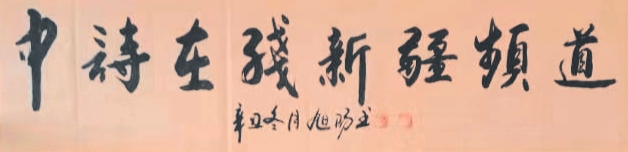 中詩在綫新疆頻道
辛丑冬月旭旸书